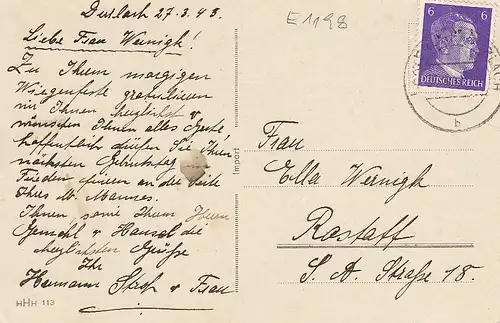 Durlach 27.3.43.
E 1198
Liebe Frau Wernigk!
Zu Ihrem morgigen
Wiegenfeste gratulieren
wir Ihnen herzlichst u
wünschen Ihnen alles Gute,
hoffentlich dürfen Sie Ihren
nächsten Geburtstag im
Frieden feiern an der Seite
Ihres lb. Mannes.
Ihnen, sowie Ihrem Herrn
Gemahl u Hansel die
herzlichsten Grüße
Ihr
Hermann u Frau
HHH 113
Import
6 6
DEUTSCHES REICH
b
Frau
Ella Wernigk
Rastatt
S. A. Straße 18.